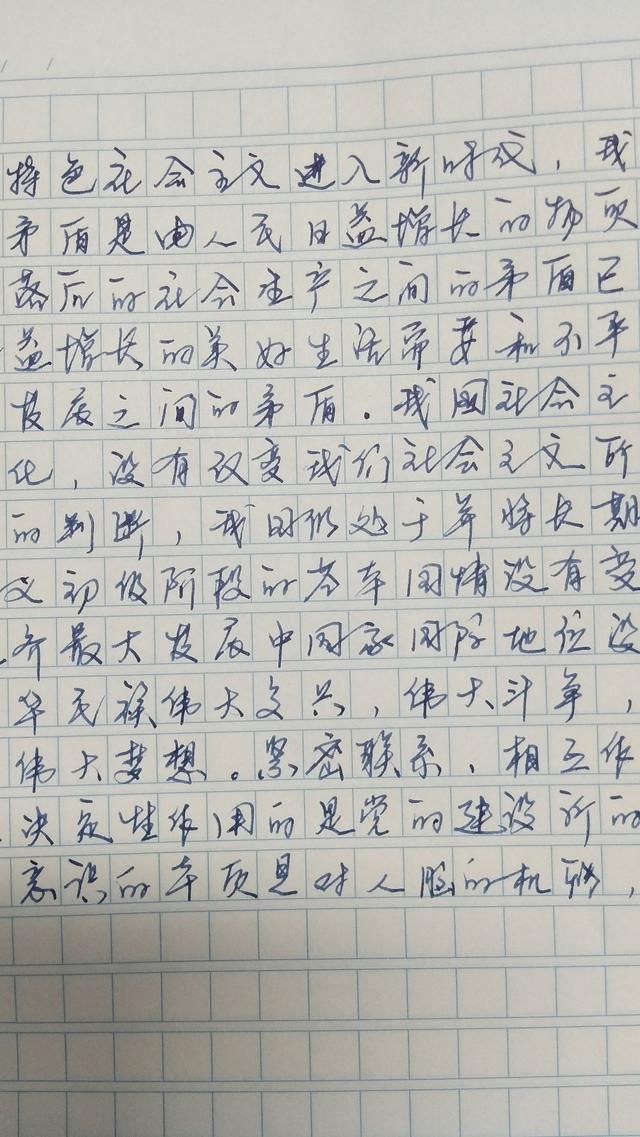 特色社会主义进入新时代，我
矛盾是由人民日益增长的物质
落后的社会生产之间的矛盾已
益增长的美好生活需要和不平
发展之间的矛盾。我国社会主
化，没有改变我们社会主义所
的判断，我国仍处于并将长期
义初级阶段的基本国情没有变
界最大发展中国家国际地位没
华民族伟大复兴，伟大斗争，
伟大梦想。紧密联系、相互作
决定性作用的是党的建设新的
意识的本质是对人脑的机